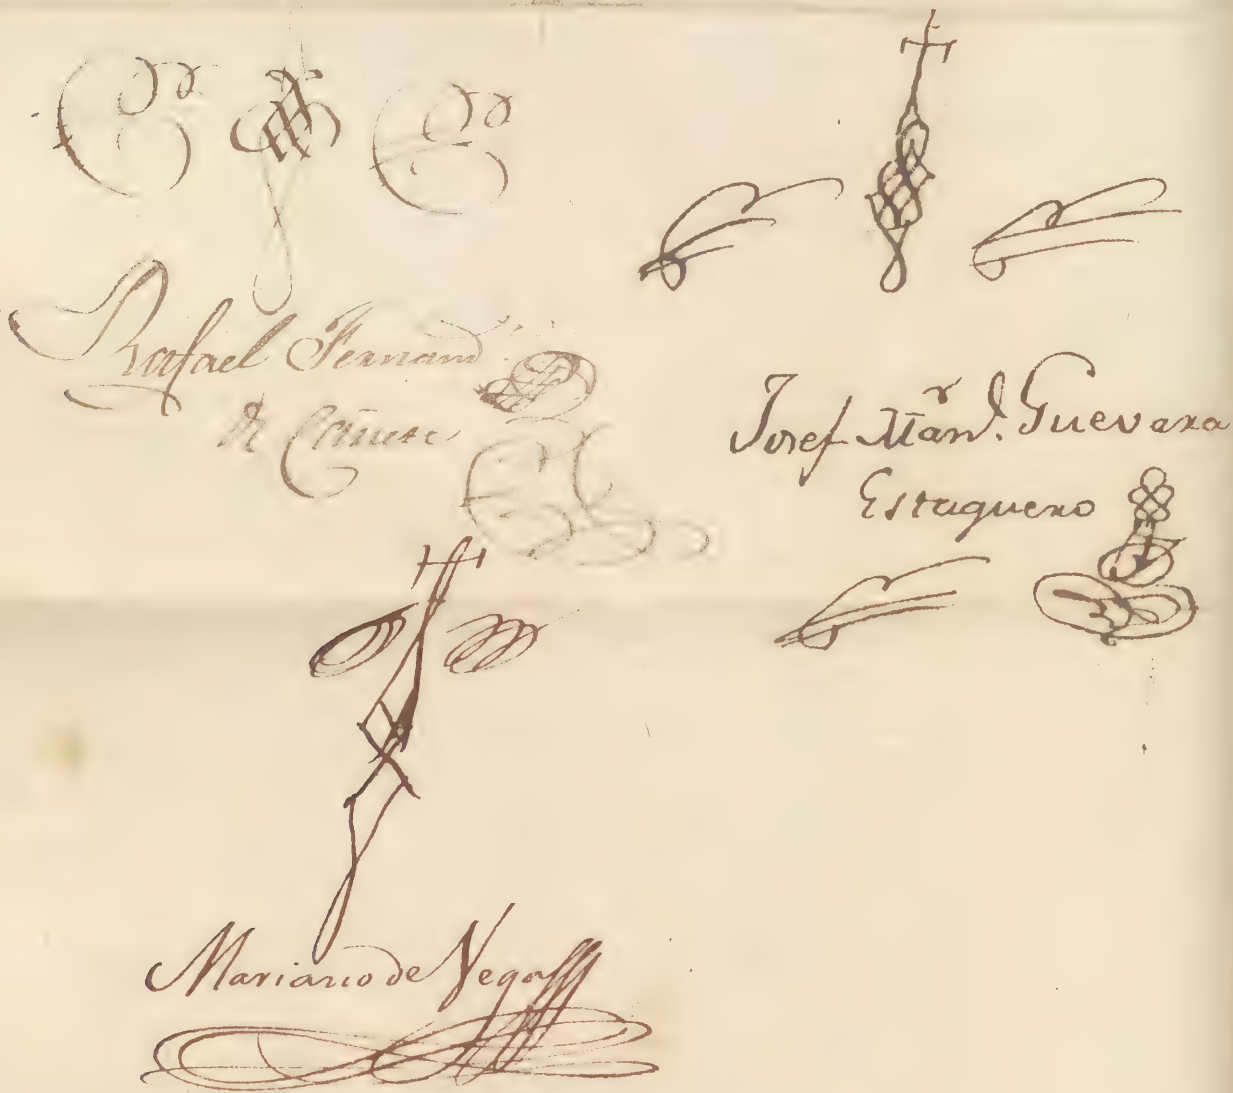 Rafael Fernand.
de Cañete
Josef Man.l Guevara
Estaquero
Mariano de Vega